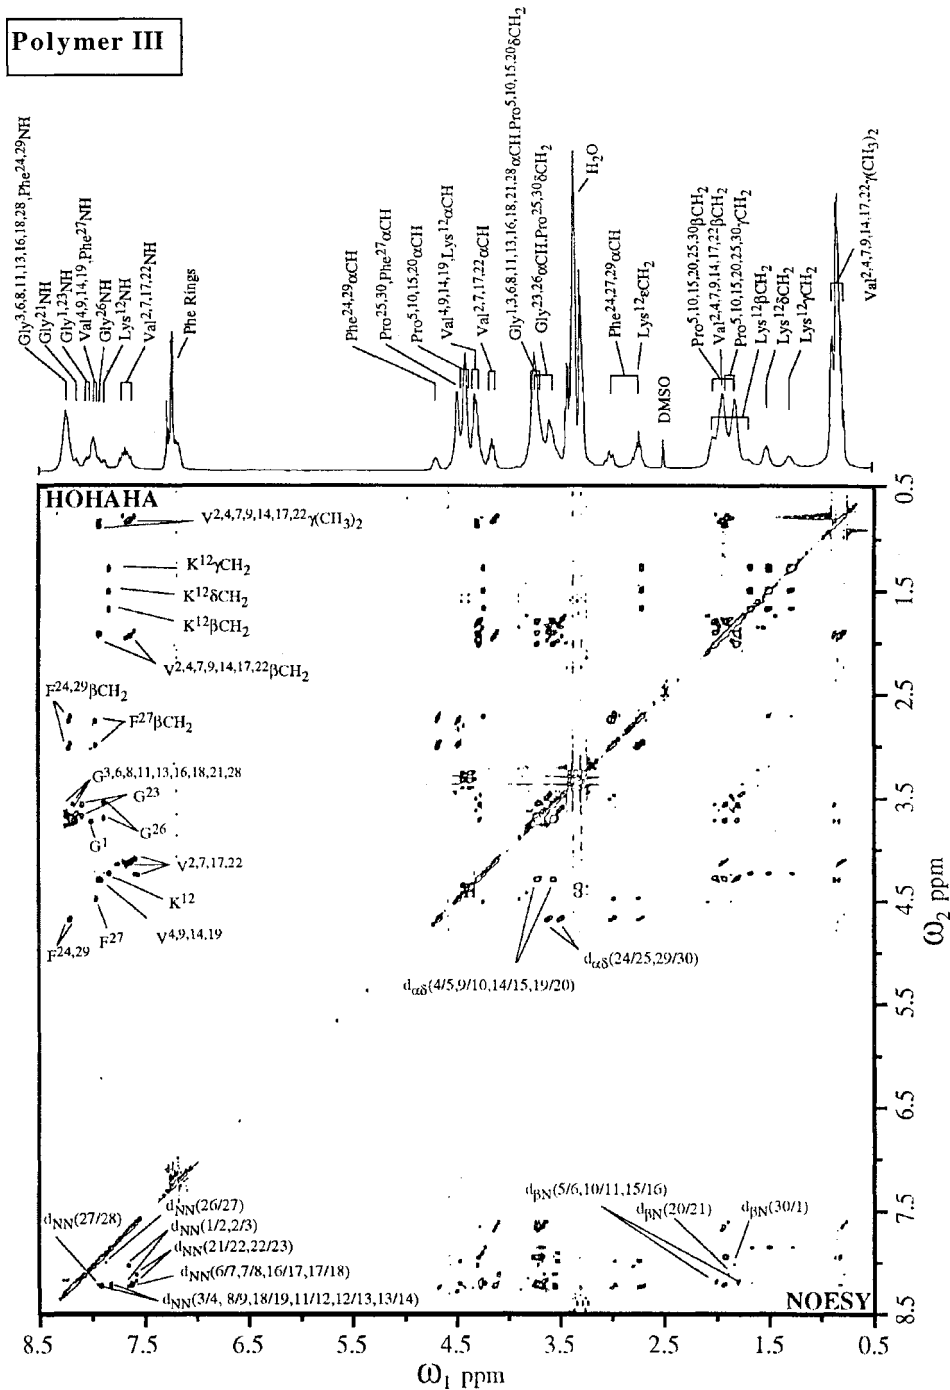 Polymer III
Gly3,6,8,11,13,16,18,28,Phe24,29NH
Gly21NH
Gly1,23NH
Val4,9,14,19,Phe27NH
Gly26NH
Lys12NH
Val2,7,17,22NH
Phe Rings
Phe24,29αCH
Pro25,30,Phe27αCH
Pro5,10,15,20αCH
Val4,9,14,19,Lys12αCH
Val2,7,17,22αCH
Gly1,3,6,8,11,13,16,18,21,28αCH.Pro5,10,15,20δCH2
Gly23,26αCH.Pro25,30δCH2
H2O
Phe24,27,29αCH
Lys12εCH2
DMSO
Pro5,10,15,20,25,30βCH2
Val2,4,7,9,14,17,22βCH2
Pro5,10,15,20,25,30γCH2
Lys12βCH2
Lys12δCH2
Lys12γCH2
Val2,4,7,9,14,17,22γ(CH3)2
8.5
0.5
HOHAHA
V2,4,7,9,14,17,22γ(CH3)2
K12γCH2
K12δCH2
K12βCH2
V2,4,7,9,14,17,22βCH2
F24,29βCH2
F27βCH2
G3,6,8,11,13,16,18,21,28
G23
G26
G1
V2,7,17,22
K12
V4,9,14,19
F27
F24,29
dαδ(24/25,29/30)
dαδ(4/5,9/10,14/15,19/20)
dNN(26/27)
dNN(27/28)
dNN(1/2,2/3)
dNN(21/22,22/23)
dNN(6/7,7/8,16/17,17/18)
dNN(3/4, 8/9,18/19,11/12,12/13,13/14)
dβN(5/6,10/11,15/16)
dβN(20/21)
dβN(30/1)
NOESY
0.5
1.5
2.5
3.5
4.5
5.5
6.5
7.5
8.5
ω2 ppm
8.5 7.5 6.5 5.5 4.5 3.5 2.5 1.5 0.5
ω1 ppm